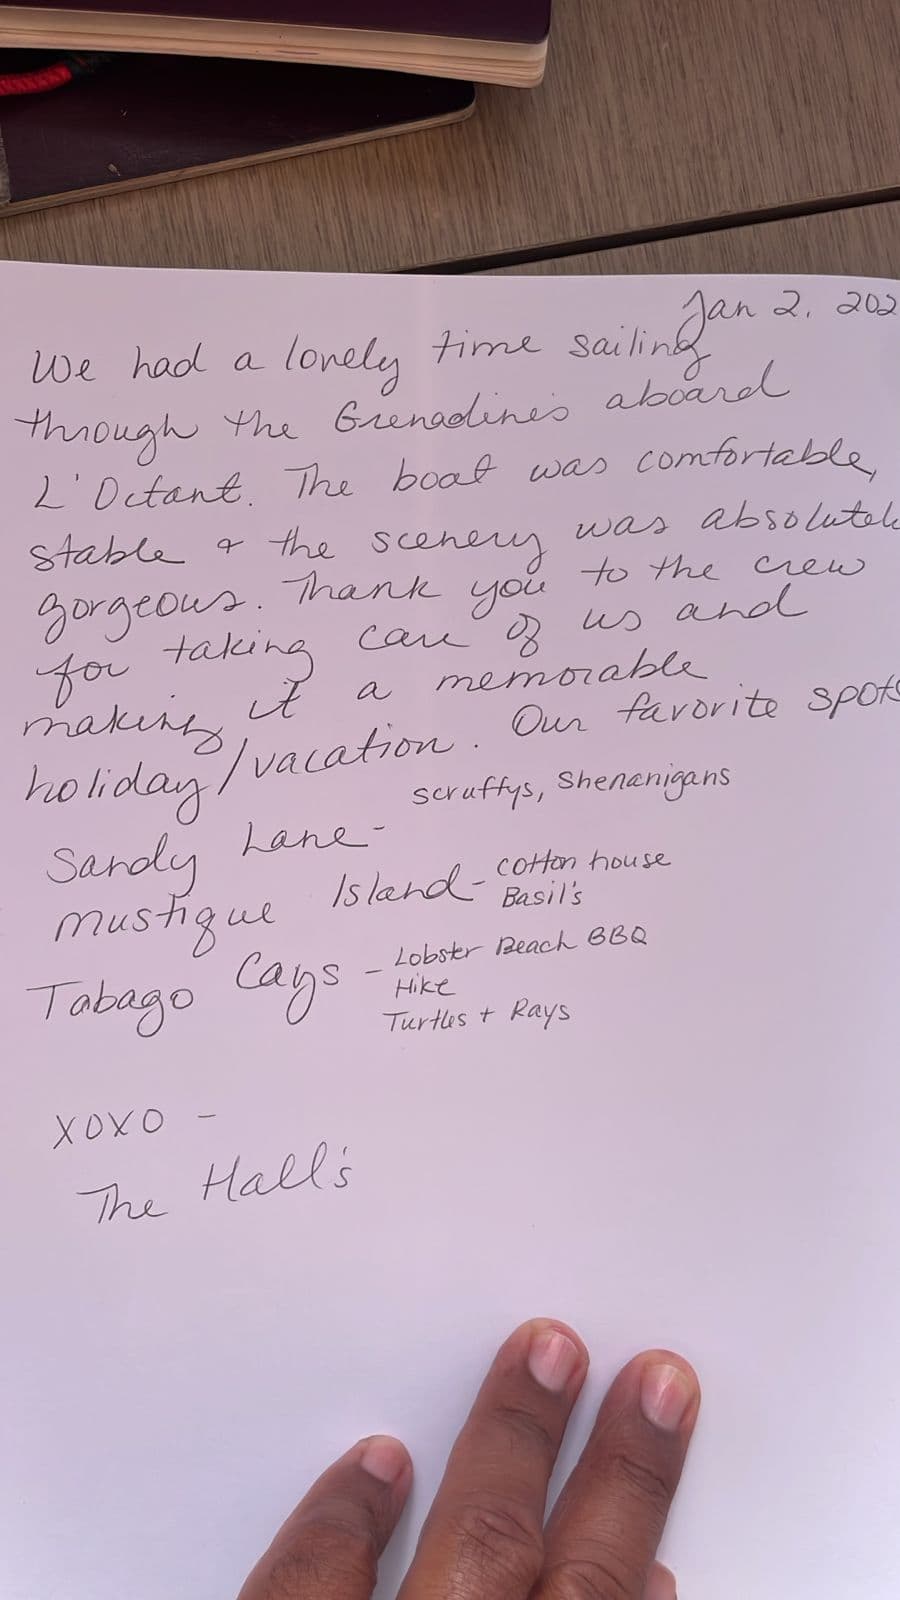 Jan 2, 202
We had a lovely time sailing
through the Grenadines aboard
L'Octant. The boat was comfortable,
stable & the scenery was absolutel
gorgeous. Thank you to the crew
for taking care of us and
making it a memorable
holiday/vacation. Our favorite spots
Sandy Lane - scruffys, Shenanigans
Mustique Island - Cotton house
Basil's
Tabago Cays - Lobster Beach BBQ
Hike
Turtles + Rays
XOXO -
The Hall's